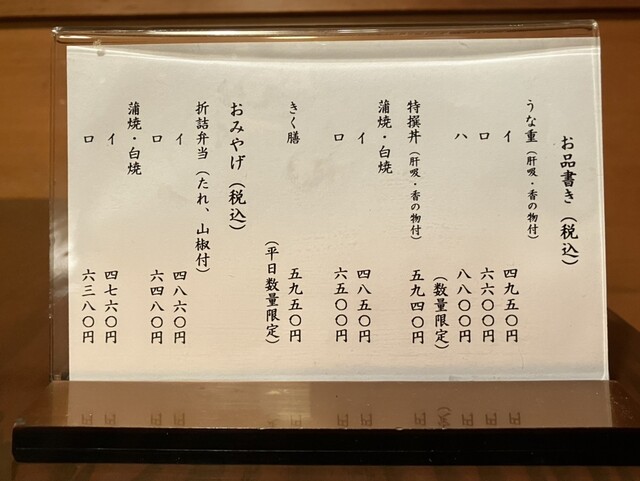 お品書き（税込）
うな重（肝吸・香の物付）
イ 四九五〇円
ロ 六六〇〇円
ハ 八八〇〇円
（数量限定）
特撰丼（肝吸・香の物付） 五九四〇円
蒲焼・白焼
イ 四八五〇円
ロ 六五〇〇円
きく膳 五九五〇円
（平日数量限定）
おみやげ（税込）
折詰弁当（たれ、山椒付）
イ 四八六〇円
ロ 六四八〇円
蒲焼・白焼
イ 四七六〇円
ロ 六三八〇円